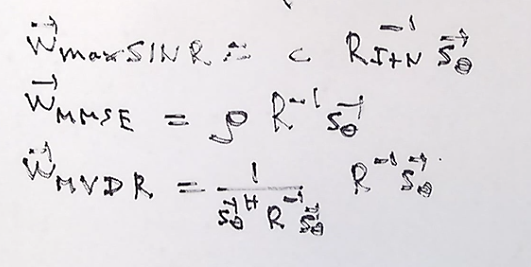 w⃗maxSINR = c R_{I+N}^{-1} s⃗_θ
w⃗MMSE = ρ R^{-1} s⃗_θ
w⃗MVDR = \frac{1}{s⃗_θ^H R^{-1} s⃗_θ} R^{-1} s⃗_θ